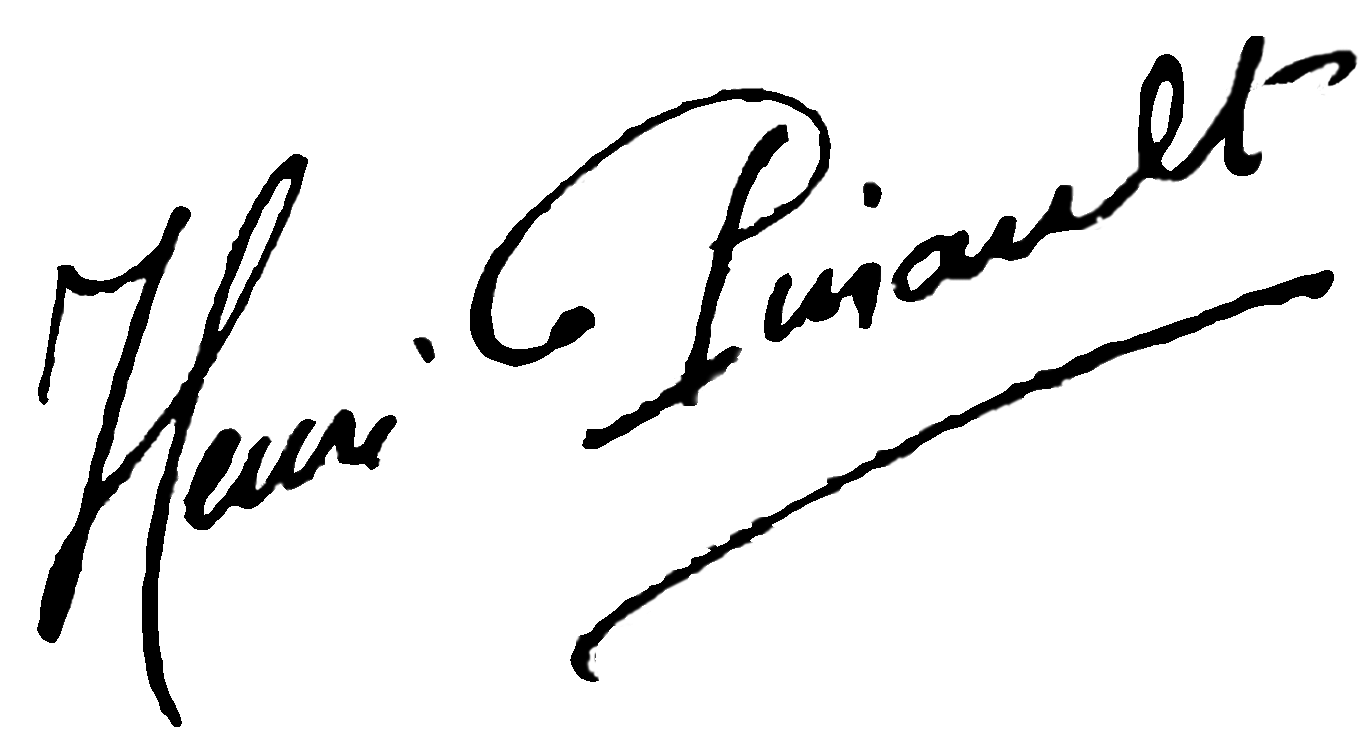 Henri Pinault